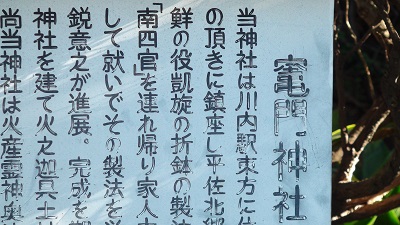 竈門神社
当神社は川内駅東方に位
の頂きに鎮座し平佐北郷
鮮の役凱旋の折鉢の製法
「南四官」を連れ帰り家人中
して就いてその製法を学
鋭意之が進展。完成を期
神社を建て火之迦具土
尚当神社は火産霊神奥